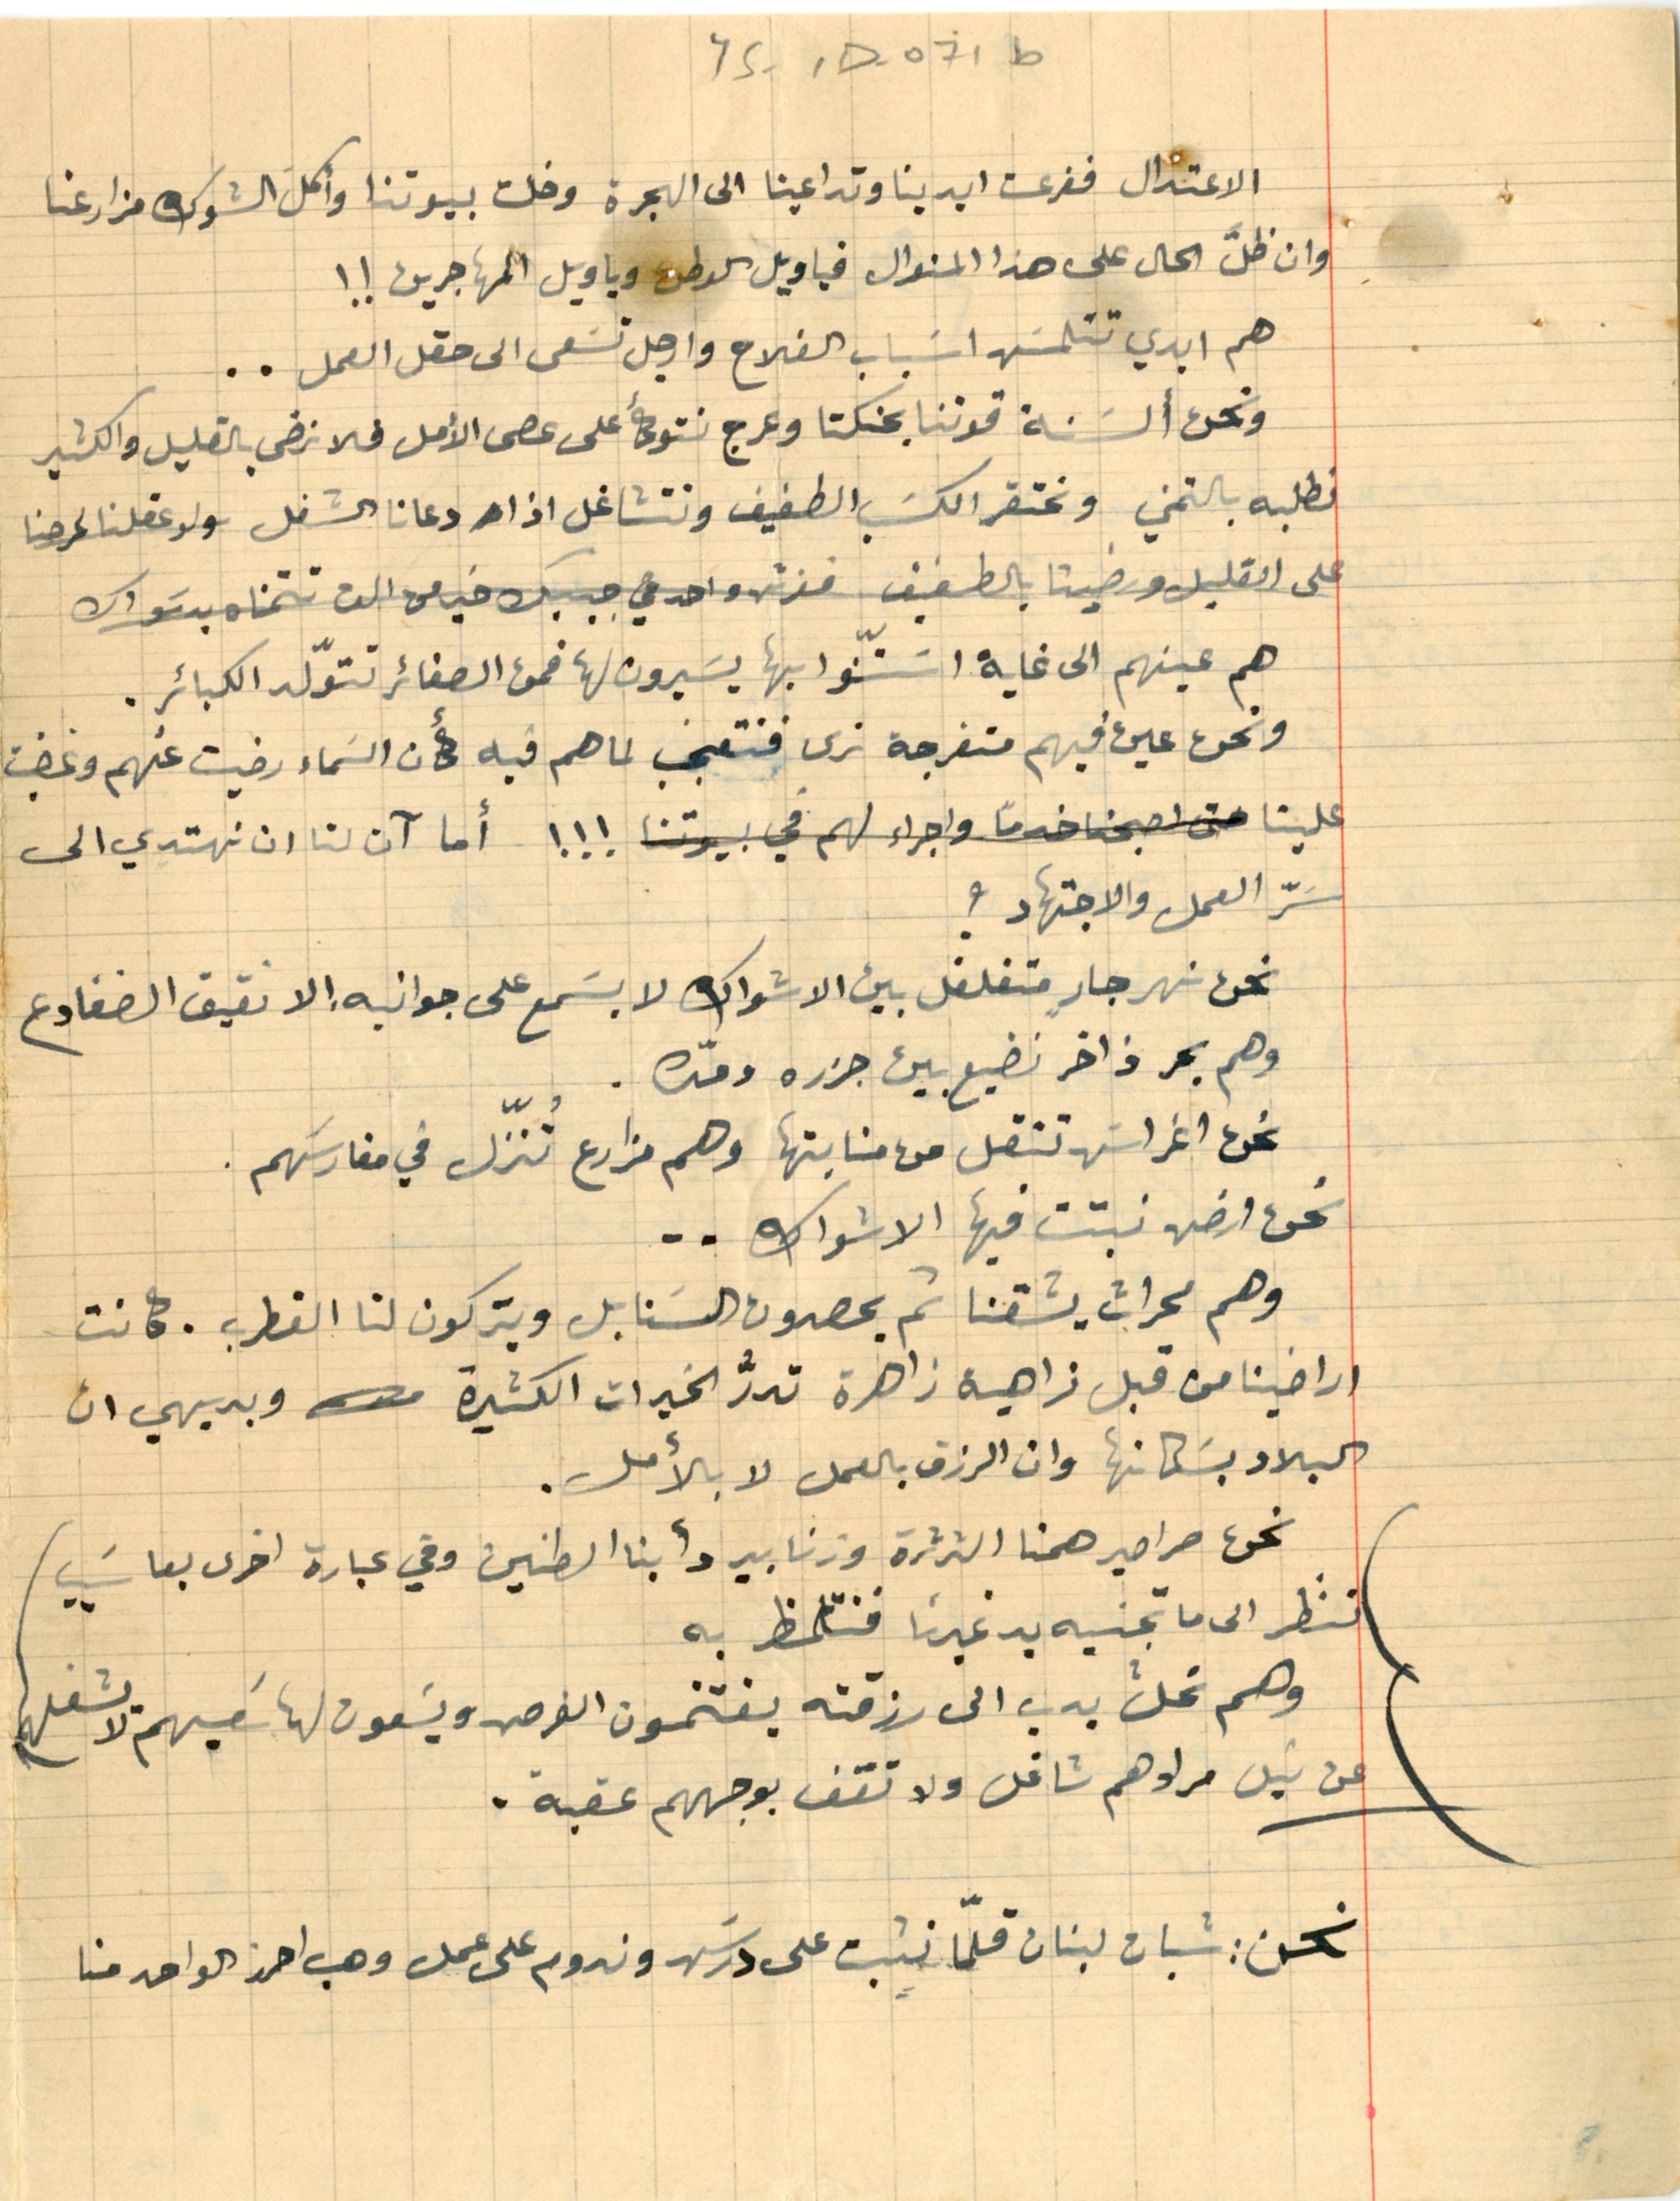 الاعتدال ففرغت ايدينا وتداعينا الى الهجرة وخلت بيوتنا وأكل الشوك مزارعنا
وان ظلَّ الحال على هذا المنوال فياويل الوطن وياويل المهاجرين !!
هم ايدي تتلمس اسباب الفلاح وارجل تسعى الى حقل العمل ..
ونحن ألسنة قوتنا بحنكتنا وعرج نتوكأ على عصى الأمل فلا نرضى بالقليل والكثير
نطلبه بالتمني ونحتقر الكسب الطفيف ونتشاغل اذا دعانا الشغل ولو عقلنا لحرصنا
على القليل ورضينا بالطفيف فغرش واحد في جيبك خير من الف تتمناه بسواك
هم عينهم الى غاية استنّوا بها يسيرون لها فمن الصغائر تتولّد الكبائر .
ونحن عين فيهم متفرجة نرى فنتعجب لما هم فيه كأن السماء رضيت عنهم وغضبت
علينا حتى اصبحنا خدمًا واجراء لهم في بيوتنا !!! أما آن لنا ان نهتدي الى
سرّ العمل والاجتهاد ؟
نحن نهر جارٍ متغلغل بين الاشواك لا يسمع على جوانبه الا نقيق الضفادع
وهم بحر زاخر نضيع بين جزره ومدّه .
نحن اغراس تنتقل من منابتها وهم مزارع تُنزّل في مغارسهم .
نحن ارض نبتت فيها الاشواك ..
وهم محراث يشقنا ثم يحصدون السنابل ويتركون لنا القطرب . كانت
اراضينا من قبل زاهية زاهرة تدرُّ الخيرات الكثيرة وبديهي ان
البلاد بسكانها وان الرزق بالعمل لا بالأمل .
نحن صراصير همنا الثرثرة وزنابير دأبنا الطنين وفي عبارة اخرى يعاسيب
ننظر الى ما تجنيه يد غيرنا فنتلمظ به
وهم نحل يدب الى رزقته يغتنمون الفرص ويسعون لها سعيهم لا يشغلهم
عن نيل مرادهم شاغل ولا تقف بوجههم عقبة .
نحن : شبان لبنان قلّما نثبت على درس وندوم على عمل وهب احرز الواحد منا